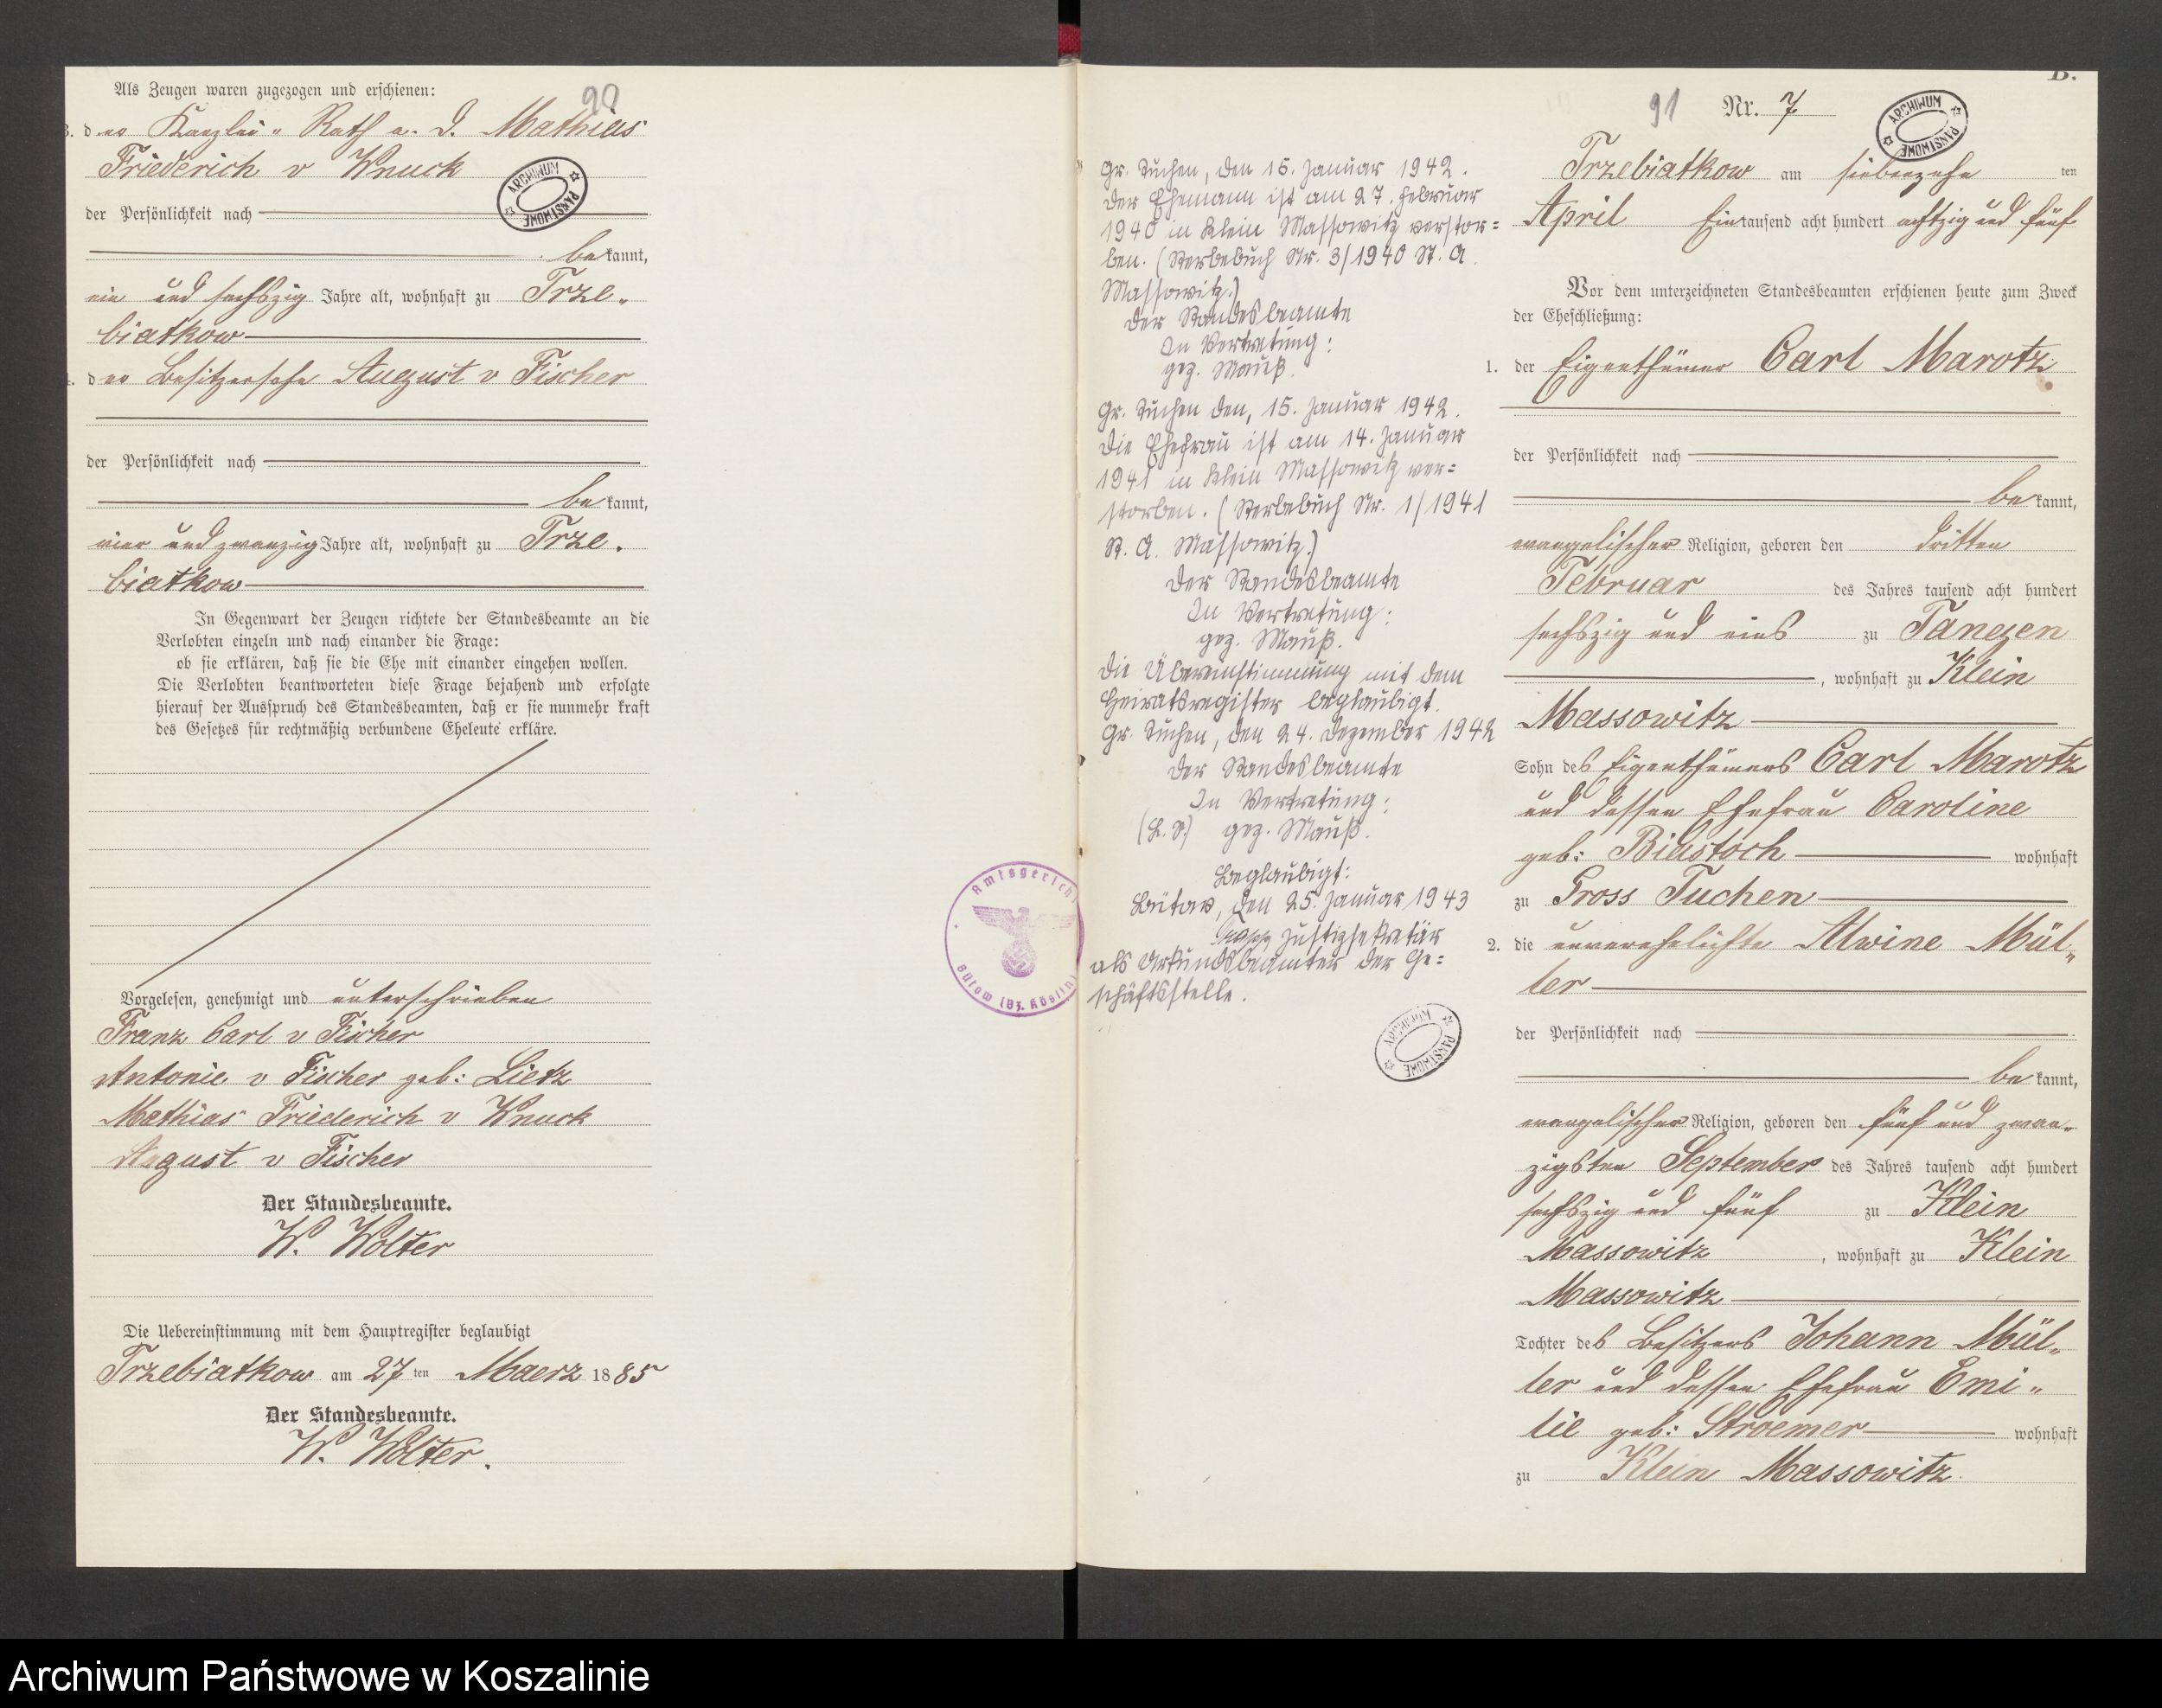 Als Zeugen waren zugezogen und erschienen:
90
3. der Kanzlei- Rath a. D. Mathias
Friederich v Wnuck
ARCHIWUM PAŃSTWOWE
der Persönlichkeit nach
bekannt,
ein und sechszig Jahre alt, wohnhaft zu Trze-
biatkow
4. der Besitzersohn August v Fischer
der Persönlichkeit nach
bekannt,
vier und zwanzig Jahre alt, wohnhaft zu Trze-
biatkow
In Gegenwart der Zeugen richtete der Standesbeamte an die
Verlobten einzeln und nach einander die Frage:
ob sie erklären, daß sie die Ehe mit einander eingehen wollen.
Die Verlobten beantworteten diese Frage bejahend und erfolgte
hierauf der Ausspruch des Standesbeamten, daß er sie nunmehr kraft
des Gesetzes für rechtmäßig verbundene Eheleute erkläre.
Vorgelesen, genehmigt und unterschrieben
Franz Carl v Fischer
Antonie v Fischer geb: Lietz
Mathias Friederich v Wnuck
August v Fischer
Der Standesbeamte.
W. Wolter
Die Uebereinstimmung mit dem Hauptregister beglaubigt
Trzebiatkow am 27ten Maerz 1885
Der Standesbeamte.
W. Wolter.
Amtsgericht
Bütow (Bz. Köslin)
Gr. Tuchen, den 15. Januar 1942.
Der Ehemann ist am 27. Februar
1940 in Klein Massowitz verstor=
ben. (Sterbebuch Nr. 3/1940 St. A.
Massowitz.)
Der Standesbeamte
In Vertretung:
gez. Mauß.
Gr. Tuchen den, 15. Januar 1942.
Die Ehefrau ist am 14. Januar
1941 in Klein Massowitz ver=
storben. (Sterbebuch Nr. 1/1941
St. A. Massowitz.)
Der Standesbeamte
In Vertretung:
gez. Mauß.
Die Übereinstimmung mit dem
Heiratsregister beglaubigt.
Gr. Tuchen, den 24. Dezember 1942
Der Standesbeamte
In Vertretung:
(L. S.) gez. Mauß.
Beglaubigt:
Bütow, den 25. Januar 1943
Justizsekretär
als Urkundsbeamter der Ge=
schäftsstelle.
ARCHIWUM PAŃSTWOWE
B.
91
Nr. 7
ARCHIWUM PAŃSTWOWE
Trzebiatkow am siebenzehn ten
April Eintausend acht hundert achtzig und fünf
Vor dem unterzeichneten Standesbeamten erschienen heute zum Zweck
der Eheschließung:
1. der Eigenthümer Carl Marotz
der Persönlichkeit nach
bekannt,
evangelischer Religion, geboren den dritten
Februar des Jahres tausend acht hundert
sechszig und eins zu Tangen
, wohnhaft zu Klein
Massowitz
Sohn des Eigenthümers Carl Marotz
und dessen Ehefrau Caroline
geb: Biastoch wohnhaft
zu Gross Tuchen
2. die unverehelichte Alwine Mül-
ler
der Persönlichkeit nach
bekannt,
evangelischer Religion, geboren den fünf und zwan-
zigsten September des Jahres tausend acht hundert
sechszig und fünf zu Klein
Massowitz, wohnhaft zu Klein
Massowitz
Tochter des Besitzers Johann Mül-
ler und dessen Ehefrau Emi-
lie geb: Stroemer wohnhaft
zu Klein Massowitz.
Archiwum Państwowe w Koszalinie